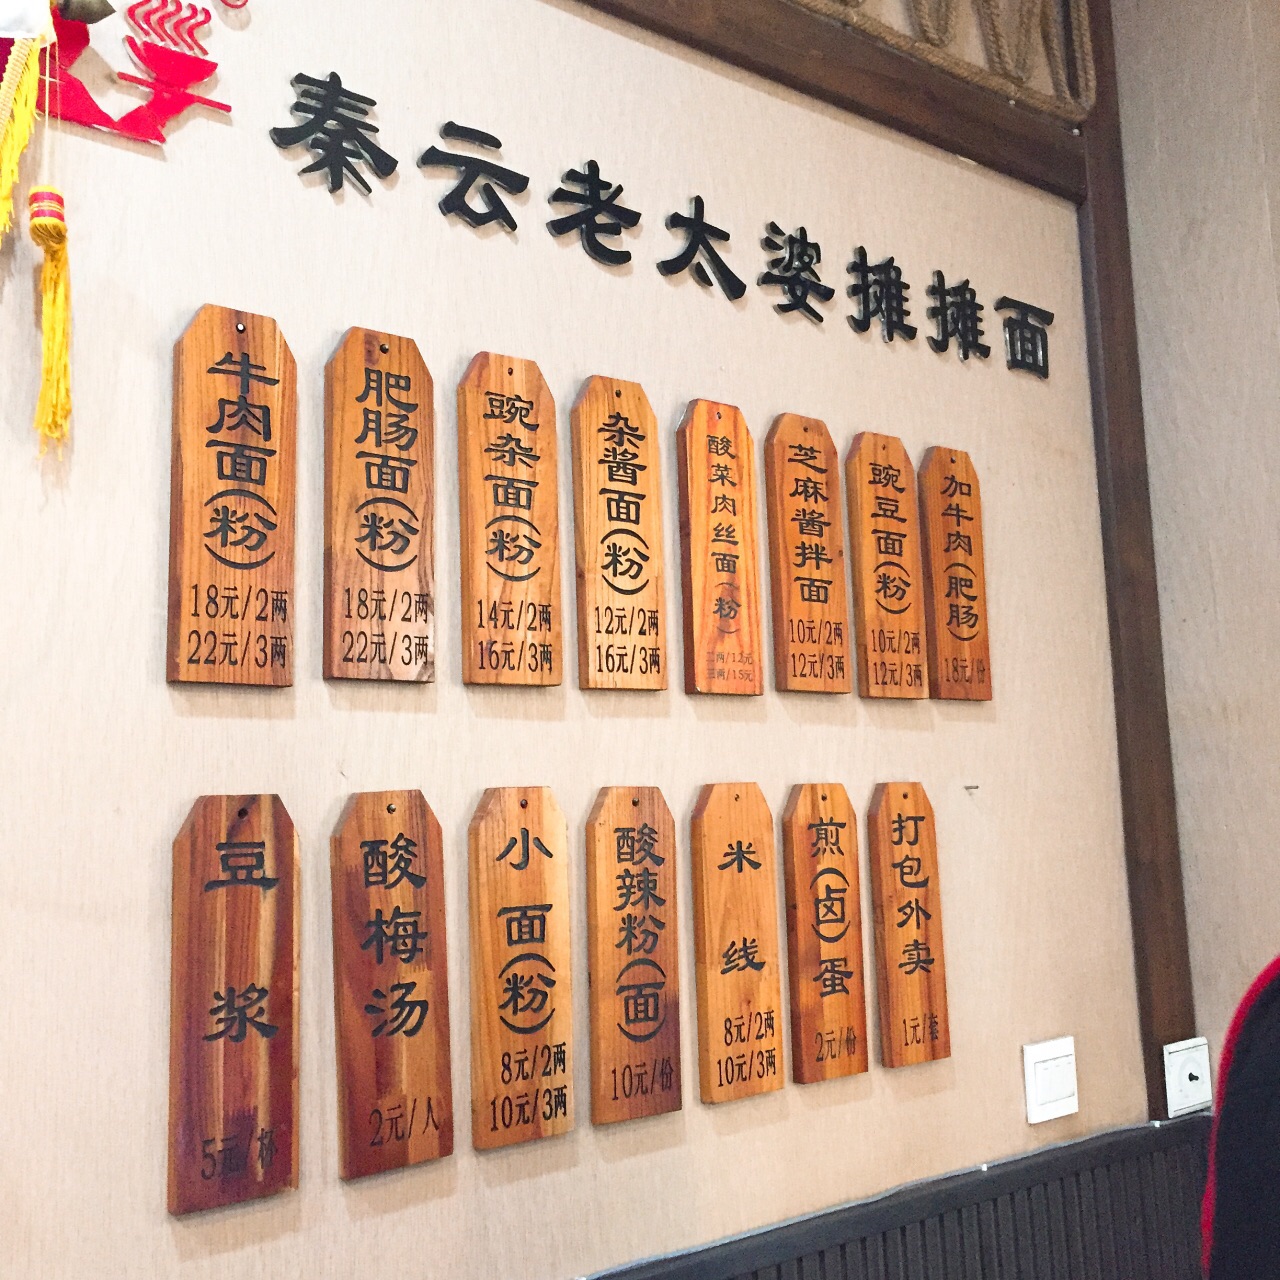 秦云老太婆摊摊面
牛肉面(粉)
18元/2两
22元/3两
肥肠面(粉)
18元/2两
22元/3两
豌杂面(粉)
14元/2两
16元/3两
杂酱面(粉)
12元/2两
16元/3两
酸菜肉丝面(粉)
二两/12元
三两/15元
芝麻酱拌面
10元/2两
12元/3两
豌豆面(粉)
10元/2两
12元/3两
加牛肉(肥肠)
18元/份
豆浆
5元/杯
酸梅汤
2元/人
小面(粉)
8元/2两
10元/3两
酸辣粉(面)
10元/份
米线
8元/2两
10元/3两
煎(卤)蛋
2元/份
打包外卖
1元/套